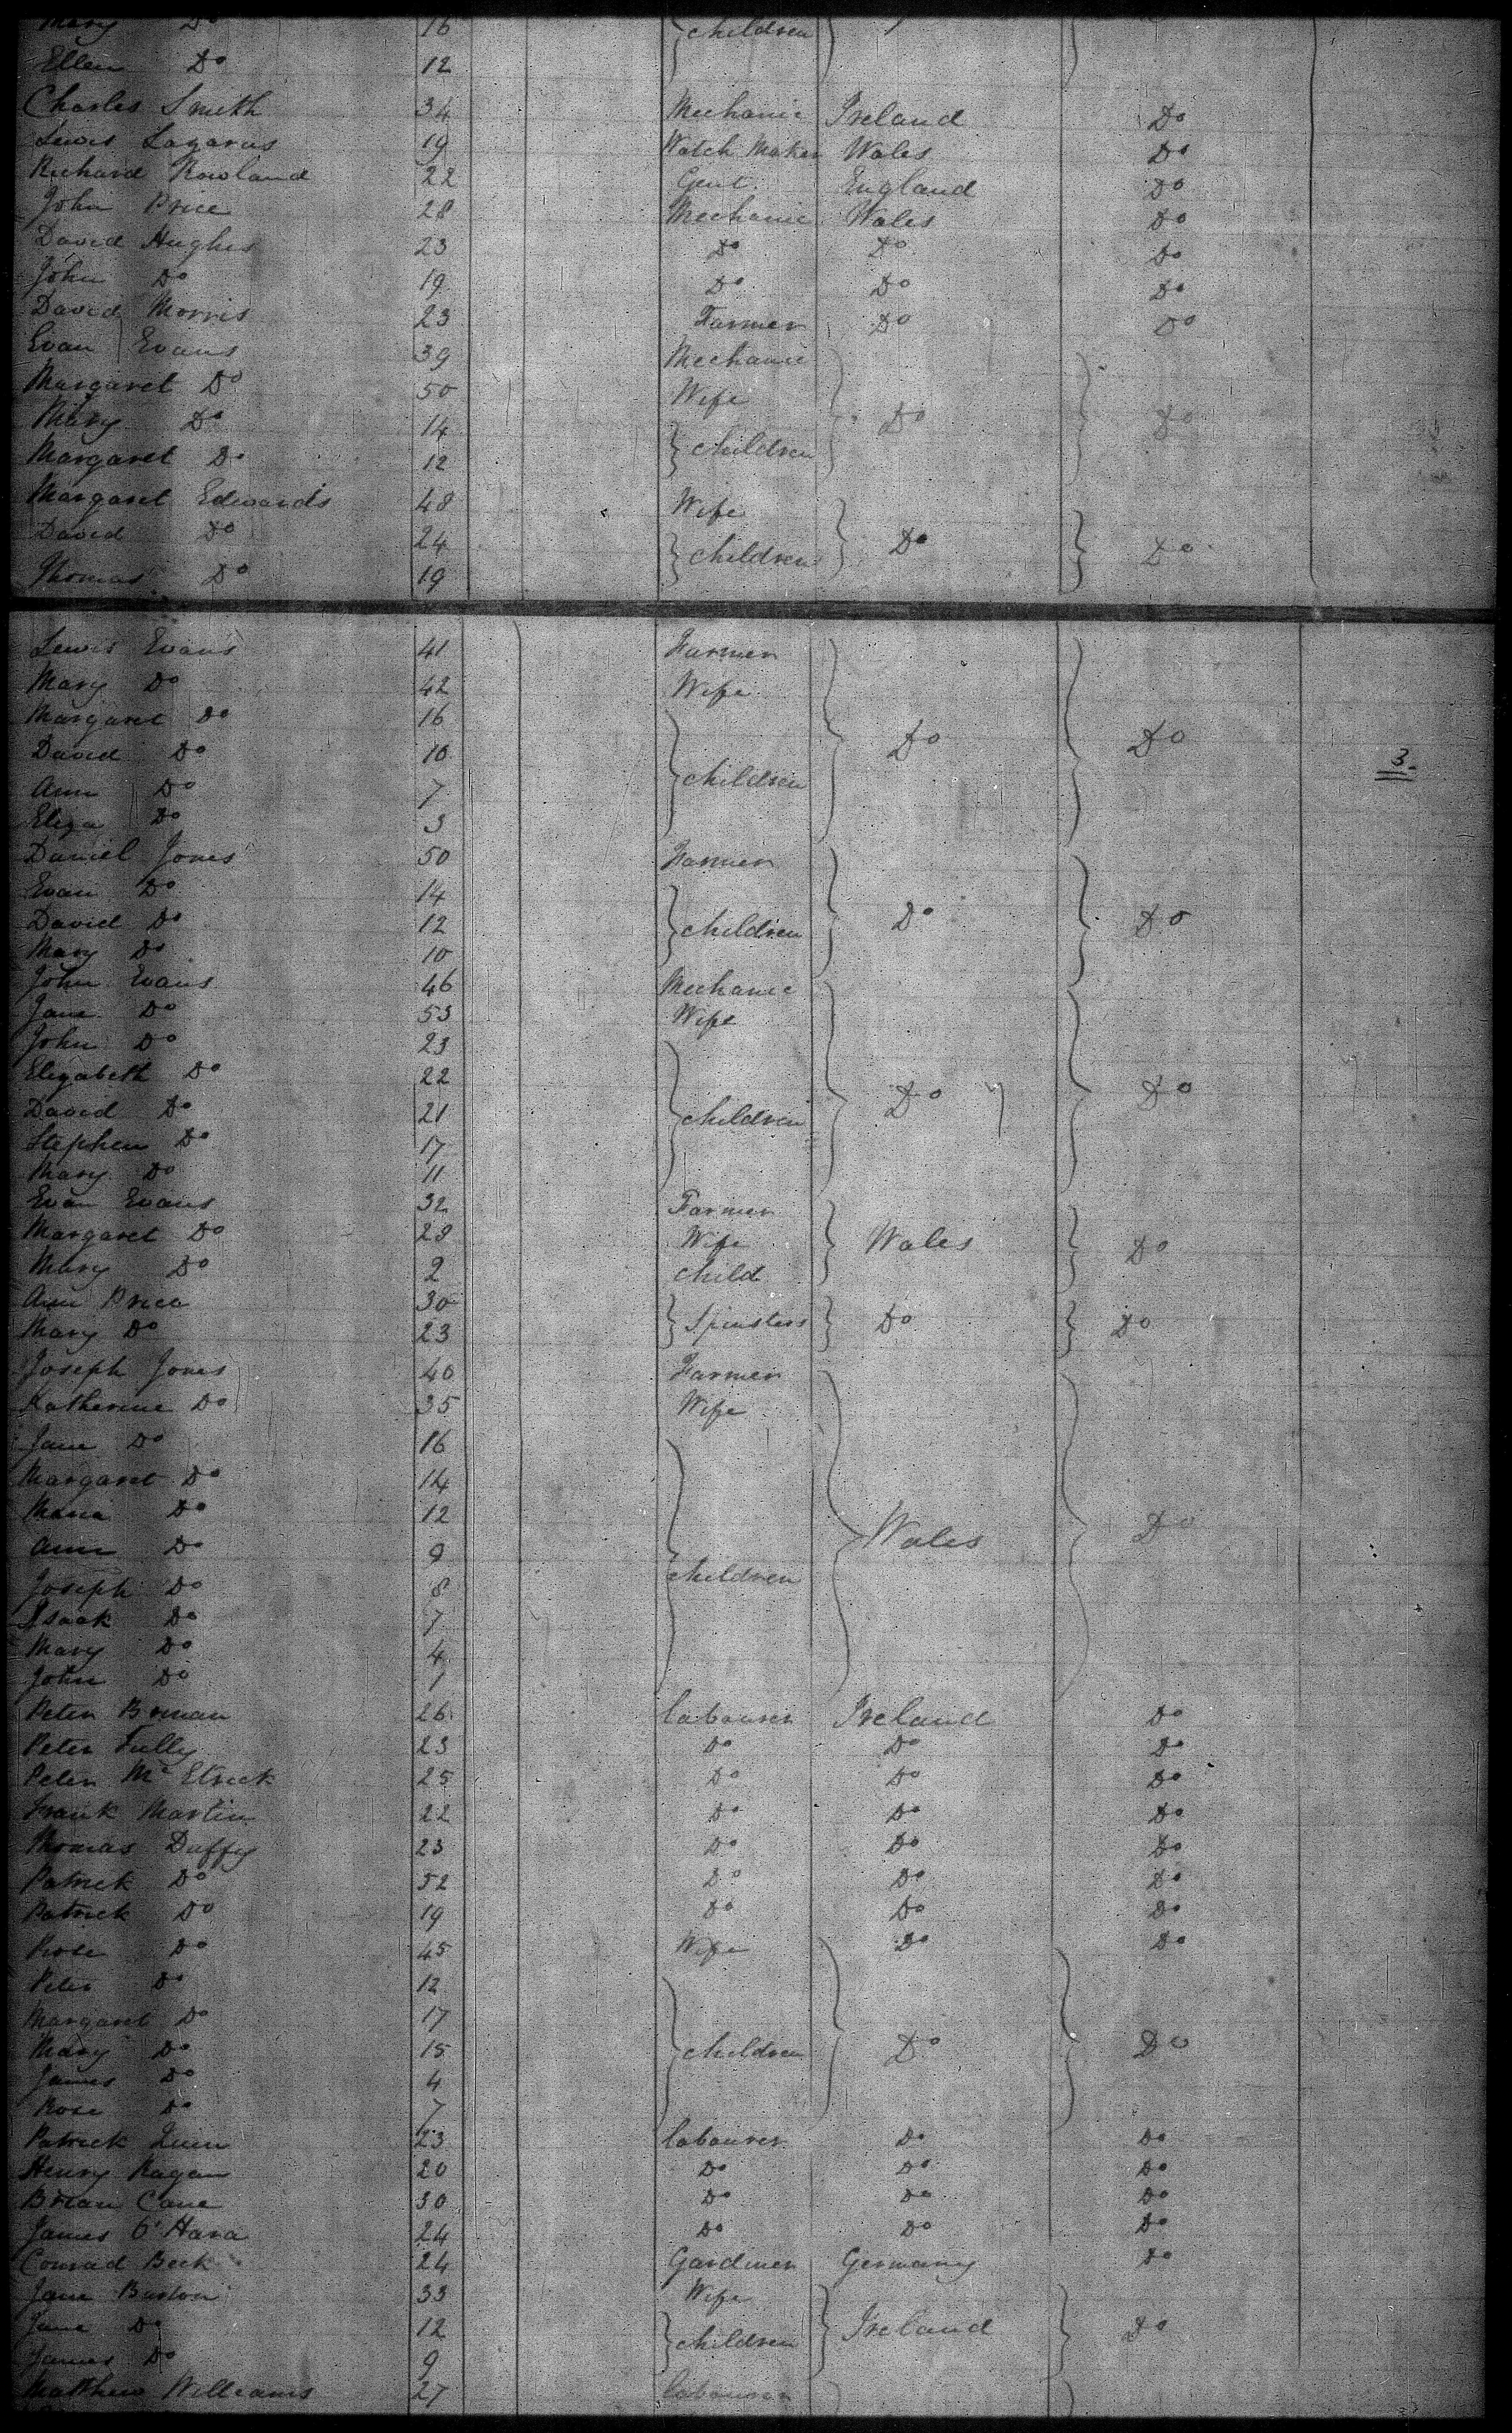 Mary Do 16 children
Ellen Do 12
Charles Smith 34 Mechanic Ireland Do
Lewis Lazarus 19 Watch Maker Wales Do
Richard Rowland 22 Gent. England Do
John Price 28 Mechanic Wales Do
David Hughes 23 Do Do Do
John Do 19 Do Do Do
David Morris 23 Farmer Do Do
Evan Evans 39 Mechanic
Margaret Do 50 Wife
Mary Do 14 Do Do
Margaret Do 12 children
Margaret Edwards 48 Wife
David Do 24 children Do Do
Thomas Do 19
Lewis Evans 41 Farmer
Mary Do 42 Wife
Margaret Do 16 Do Do
David Do 10 3
Ann Do 7 children
Eliza Do 3
Daniel Jones 50 Farmer
Evan Do 14
David Do 12 children Do Do
Mary Do 10
John Evans 46 Mechanic
Jane Do 53 Wife
John Do 23
Elizabeth Do 22 Do Do
David Do 21 children
Stephen Do 17
Mary Do 11
Evan Evans 32 Farmer
Margaret Do 28 Wife Wales Do
Mary Do 2 child
Ann Price 30 Spinsters Do Do
Mary Do 23
Joseph Jones 40 Farmer
Katherine Do 35 Wife
Jane Do 16
Margaret Do 14
Maria Do 12 Wales Do
Ann Do 9 children
Joseph Do 8
Isaak Do 7
Mary Do 4
John Do 1
Peter 26 labourer Ireland Do
Peter Tully 23 Do Do Do
Peter 25 Do Do Do
Frank Martin 22 Do Do Do
Thomas Duffy 23 Do Do Do
Patrick Do 52 Do Do Do
Patrick Do 19 Do Do Do
Rose Do 45 Wife Do Do
Peter Do 12
Margaret Do 17
Mary Do 15 children Do Do
James Do 4
Rose Do 7
Patrick Quin 23 labourer Do Do
Henry Ragan 20 Do Do Do
Brian Cane 30 Do Do Do
James O'Hara 24 Do Do Do
Conrad Beck 24 Gardiner Germany Do
Jane Burton 33 Wife
Jane Do 12 children Ireland Do
James Do 9
Matthew Williams 27 labourer